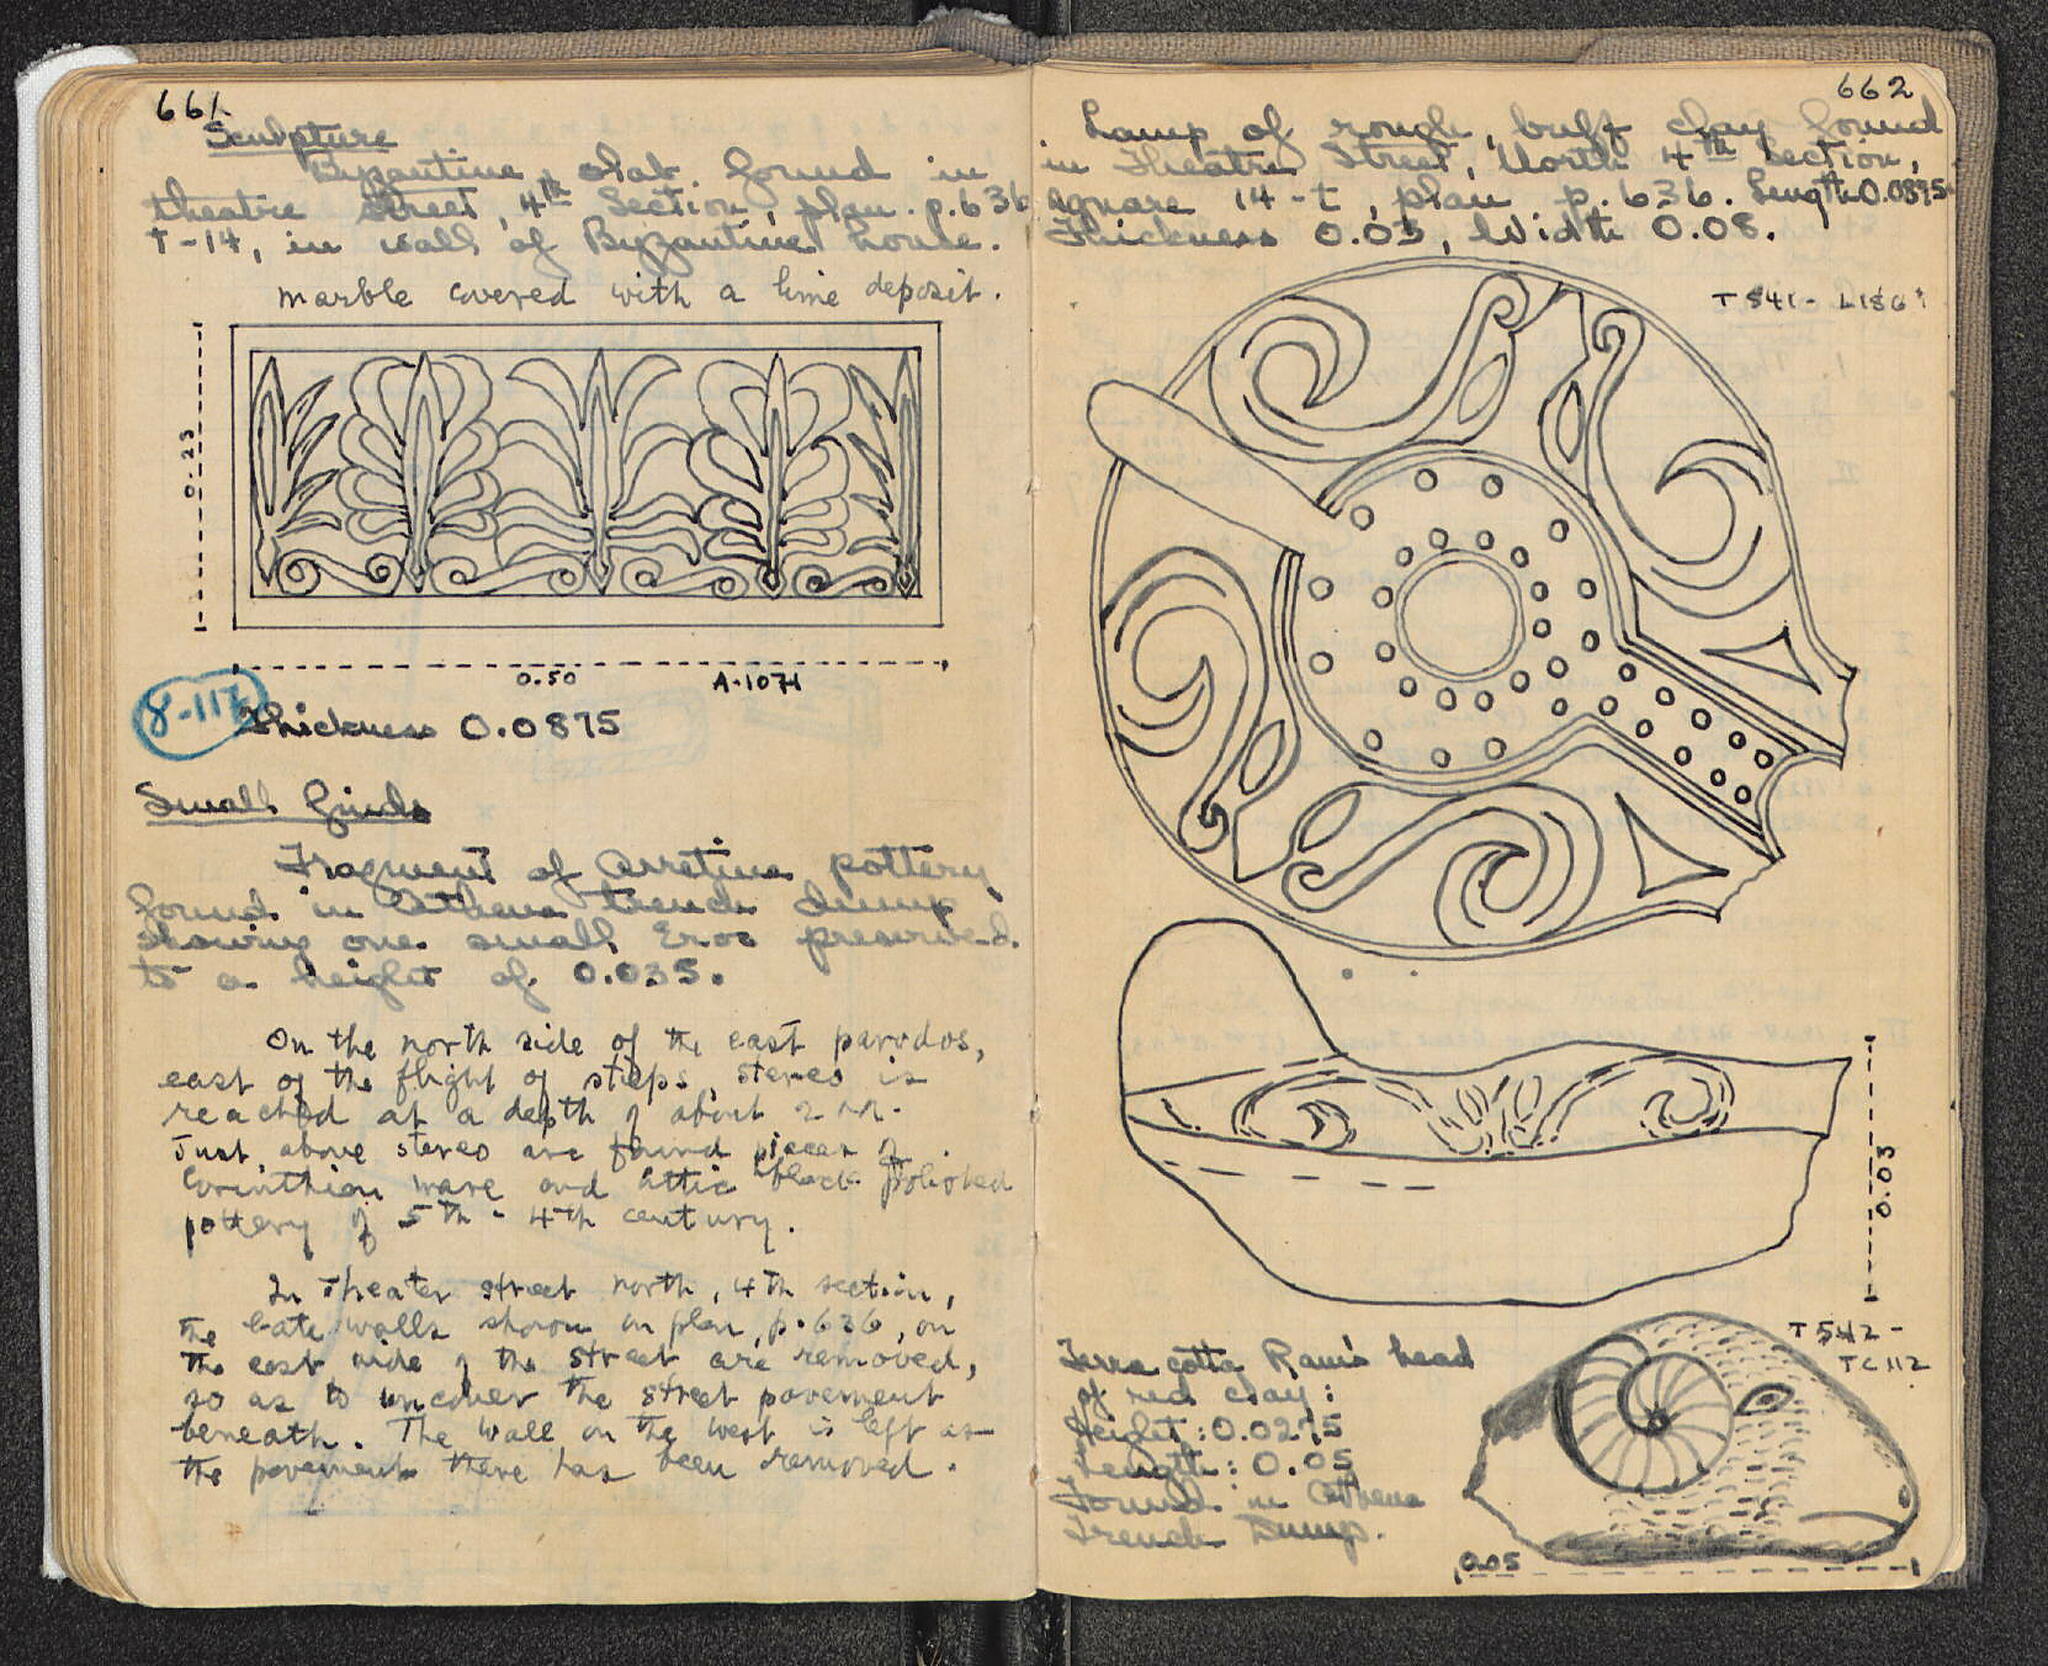 661
Sculpture
Byzantine slab found in
theatre street, 4th Section, plan p. 636
T-14, in wall of Byzantine house.
marble covered with a lime deposit.
0.23
0.50
A-1074
8-117
Thickness 0.0875
Small finds
Fragment of Arretine pottery
found in Athena trench dump
showing one small Eros preserved
to a height of 0.035.
On the north side of the east parodos,
east of the flight of steps, stereo is
reached at a depth of about 2 m.
Just above stereo are found pieces of
Corinthian ware and Attic black polished
pottery of 5th - 4th century.
In Theater street north, 4th section,
the late walls shown on plan, p. 636, on
the east side of the street are removed,
so as to uncover the street pavement
beneath. The wall on the west is left as
the pavement there has been removed.
662
Lamp of rough, buff clay found
in Theatre Street, North 4th Section,
square 14-t, plan p. 636. Length 0.0895
Thickness 0.03, Width 0.08.
T 541 - L1867
0.03
T 542 -
TC 112
Terra cotta Ram's head
of red clay:
Height: 0.0275
Length: 0.05
Found in Athena
Trench Dump.
0.05